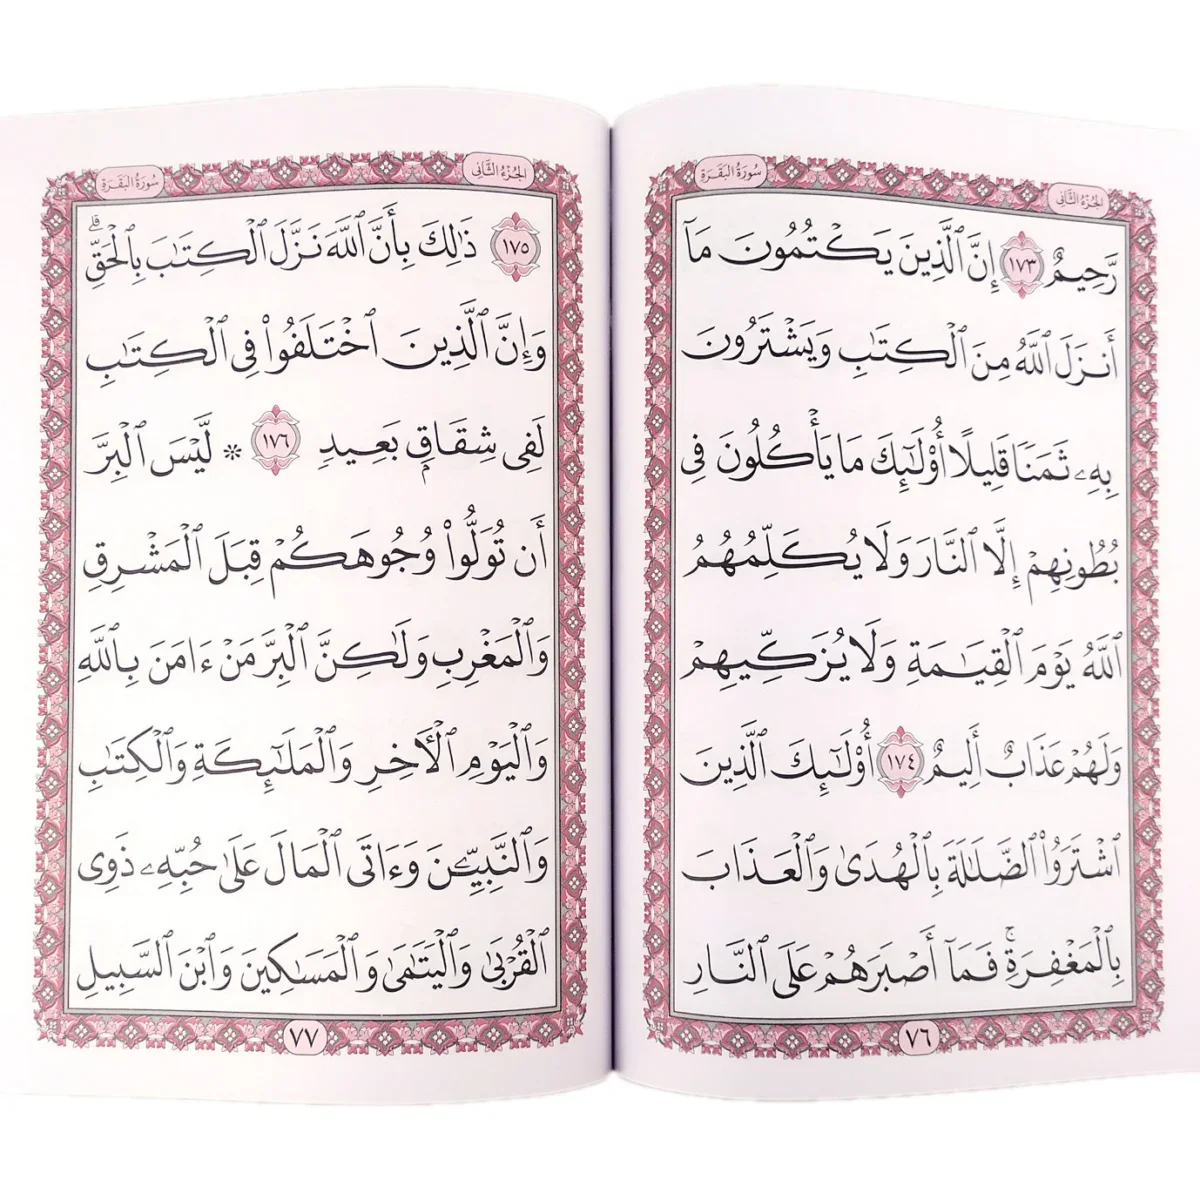 سُورَةُ البَقَرَةِ
الجُزْءُ الثَّانِي
رَّحِيمٌ ١٧٣ إِنَّ ٱلَّذِينَ يَكْتُمُونَ مَآ
أَنزَلَ ٱللَّهُ مِنَ ٱلْكِتَٰبِ وَيَشْتَرُونَ
بِهِۦ ثَمَنًا قَلِيلًا أُو۟لَٰٓئِكَ مَا يَأْكُلُونَ فِى
بُطُونِهِمْ إِلَّا ٱلنَّارَ وَلَا يُكَلِّمُهُمُ
ٱللَّهُ يَوْمَ ٱلْقِيَٰمَةِ وَلَا يُزَكِّيهِمْ
وَلَهُمْ عَذَابٌ أَلِيمٌ ١٧٤ أُو۟لَٰٓئِكَ ٱلَّذِينَ
ٱشْتَرَوُا۟ ٱلضَّلَٰلَةَ بِٱلْهُدَىٰ وَٱلْعَذَابَ
بِٱلْمَغْفِرَةِ ۚ فَمَآ أَصْبَرَهُمْ عَلَى ٱلنَّارِ
٧٦
سُورَةُ البَقَرَةِ
الجُزْءُ الثَّانِي
١٧٥ ذَٰلِكَ بِأَنَّ ٱللَّهَ نَزَّلَ ٱلْكِتَٰبَ بِٱلْحَقِّ ۗ
وَإِنَّ ٱلَّذِينَ ٱخْتَلَفُوا۟ فِى ٱلْكِتَٰبِ
لَفِى شِقَاقٍۭ بَعِيدٍ ١٧٦ * لَّيْسَ ٱلْبِرَّ
أَن تُوَلُّوا۟ وُجُوهَكُمْ قِبَلَ ٱلْمَشْرِقِ
وَٱلْمَغْرِبِ وَلَٰكِنَّ ٱلْبِرَّ مَنْ ءَامَنَ بِٱللَّهِ
وَٱلْيَوْمِ ٱلْأَخِرِ وَٱلْمَلَٰٓئِكَةِ وَٱلْكِتَٰبِ
وَٱلنَّبِيِّۦنَ وَءَاتَى ٱلْمَالَ عَلَىٰ حُبِّهِۦ ذَوِى
ٱلْقُرْبَىٰ وَٱلْيَتَٰمَىٰ وَٱلْمَسَٰكِينَ وَٱبْنَ ٱلسَّبِيلِ
٧٧